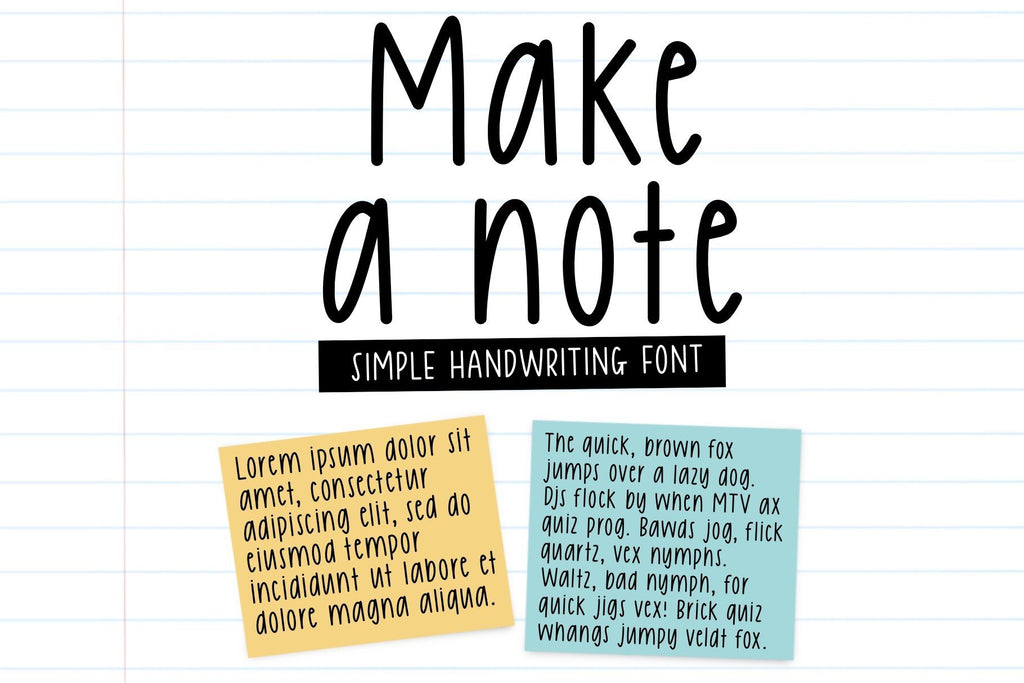 Make
a note
SIMPLE HANDWRITING FONT
Lorem ipsum dolor sit
amet, consectetur
adipiscing elit, sed do
eiusmod tempor
incididunt ut labore et
dolore magna aliqua.
The quick, brown fox
jumps over a lazy dog.
Djs flock by when MTV ax
quiz prog. Bawds jog, flick
quartz, vex nymphs.
Waltz, bad nymph, for
quick jigs vex! Brick quiz
whangs jumpy veldt fox.